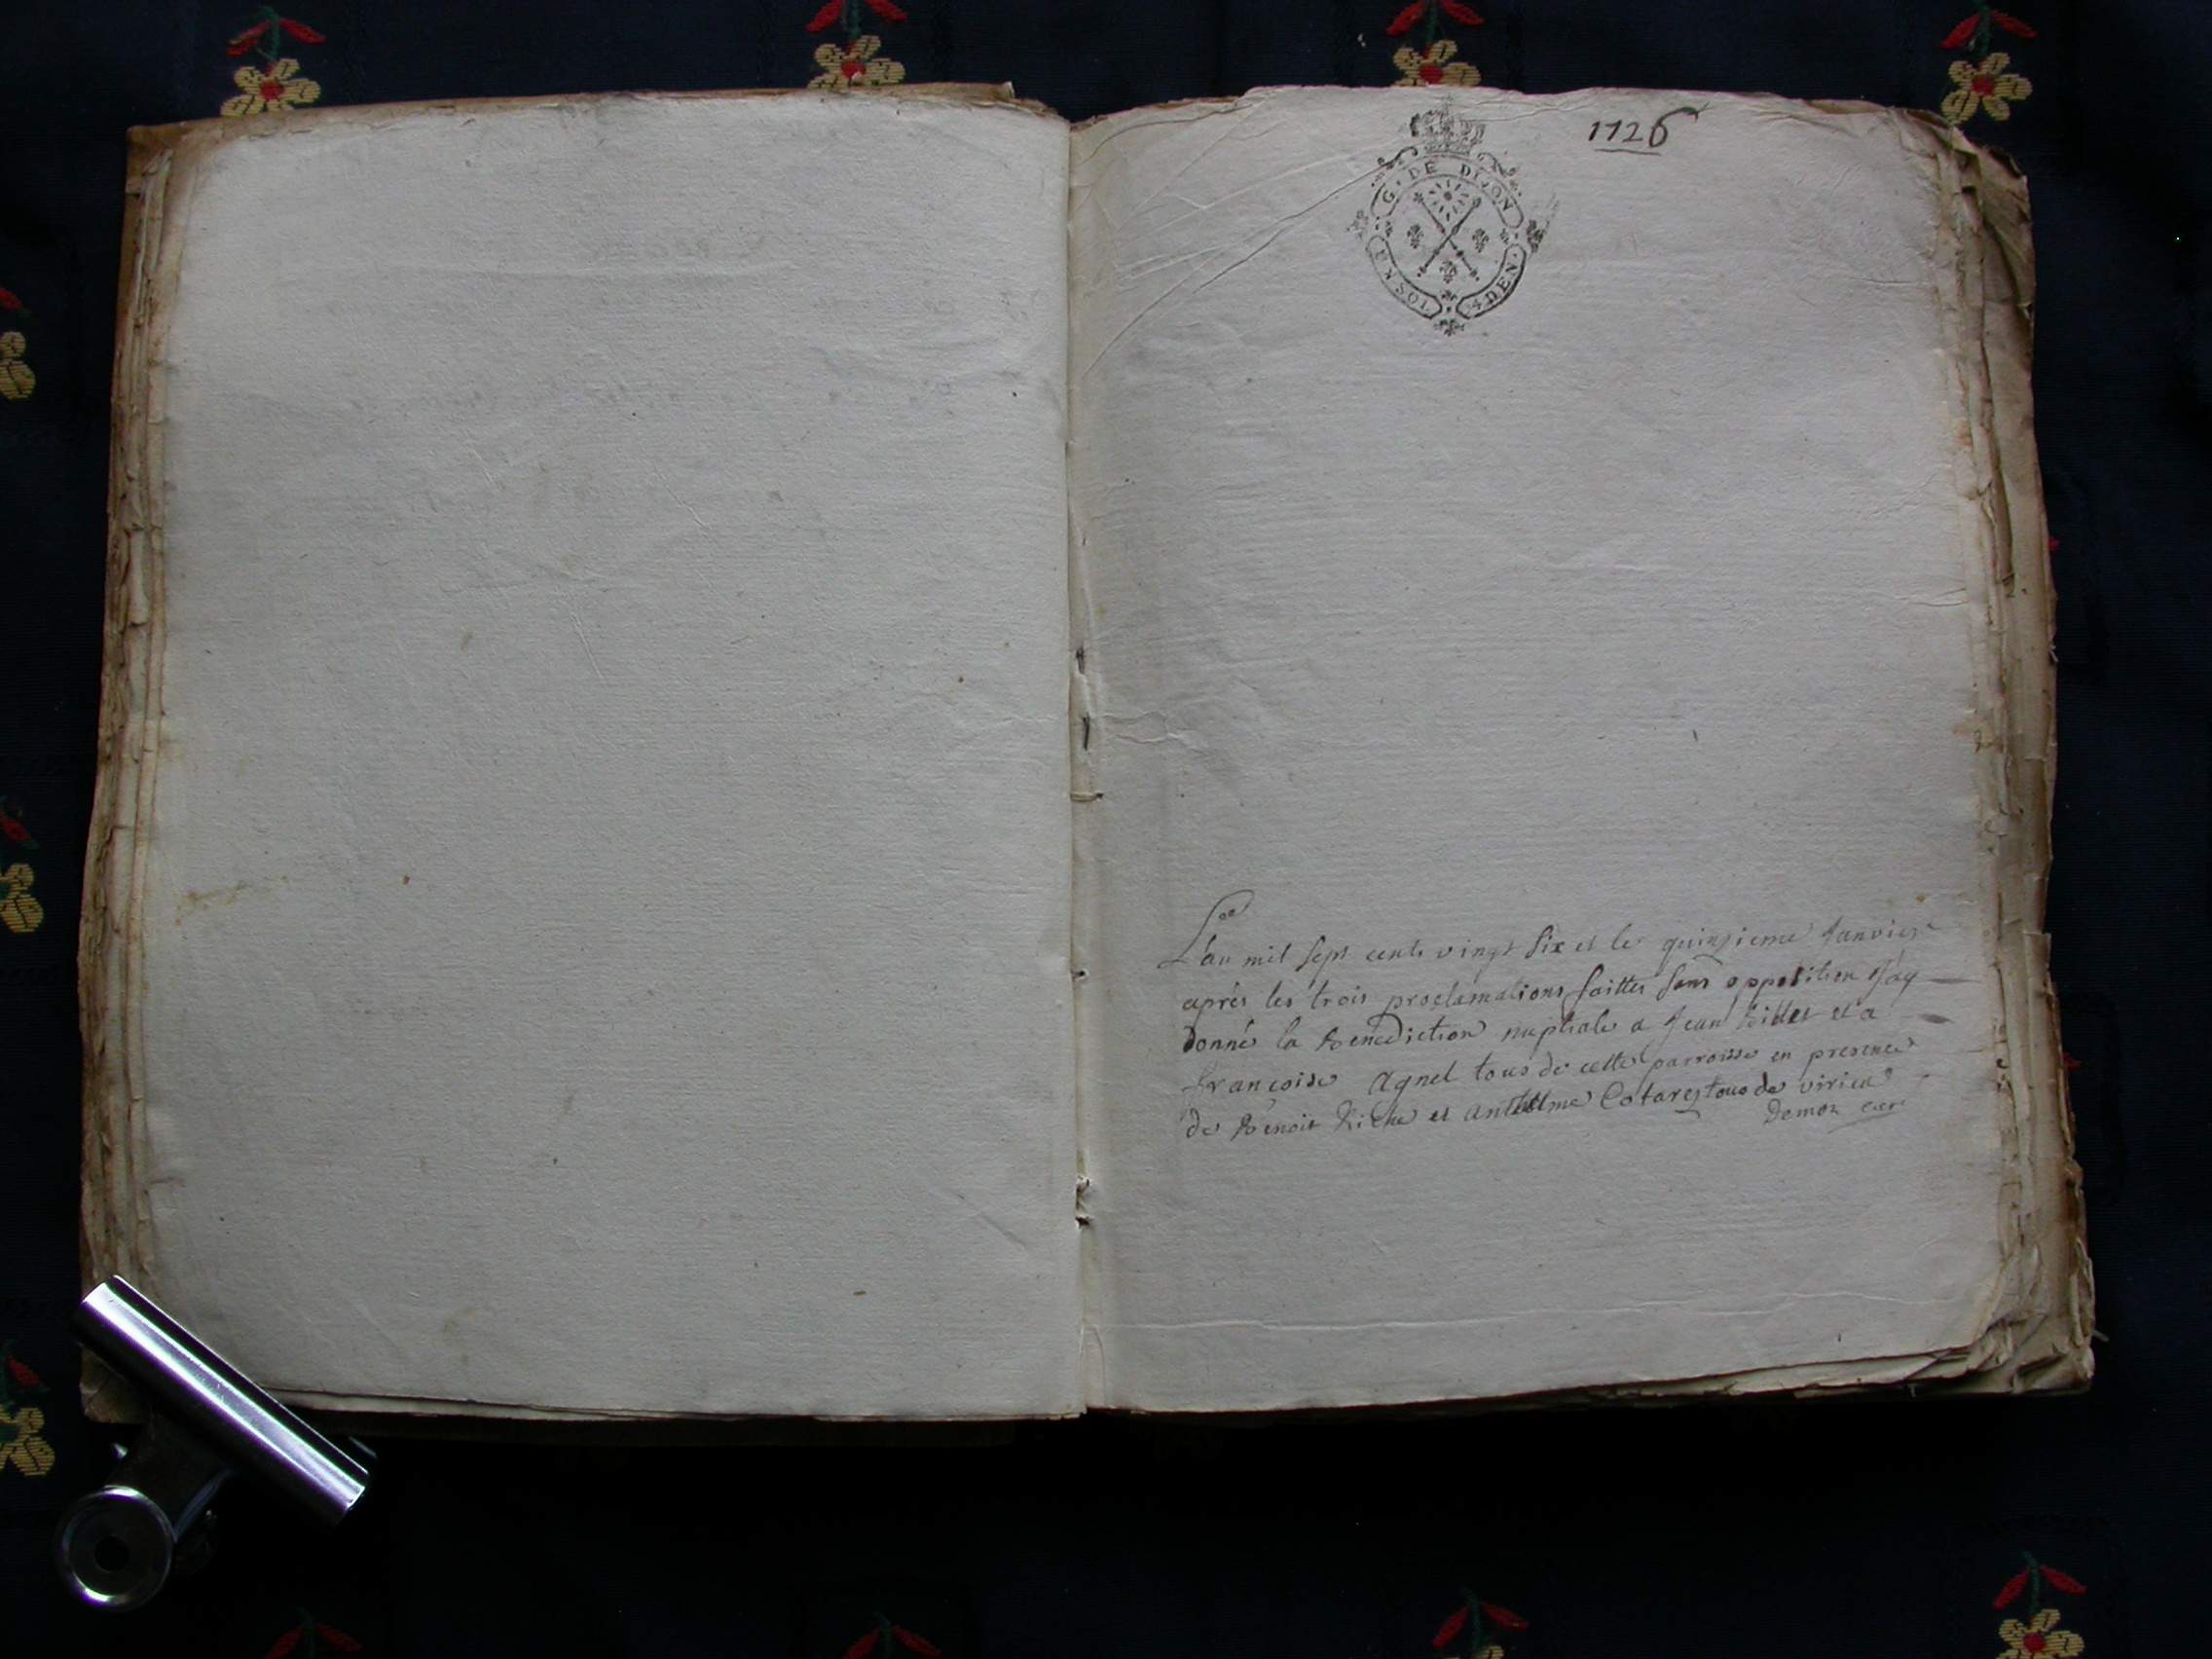 1726
G · DE DIJON
SOL
4 DEN ·
L'an mil sept cents vingt six et le quinzieme Janvier
aprés les trois proclamations faittes sans opposition J'ay
donné la Benediction nuptiale a Jean Billet et a
françoise Agnel tous de cette parroisse en presence
de Benoit Riche et anthelme Cotarey tous de virieu
Demoz curé